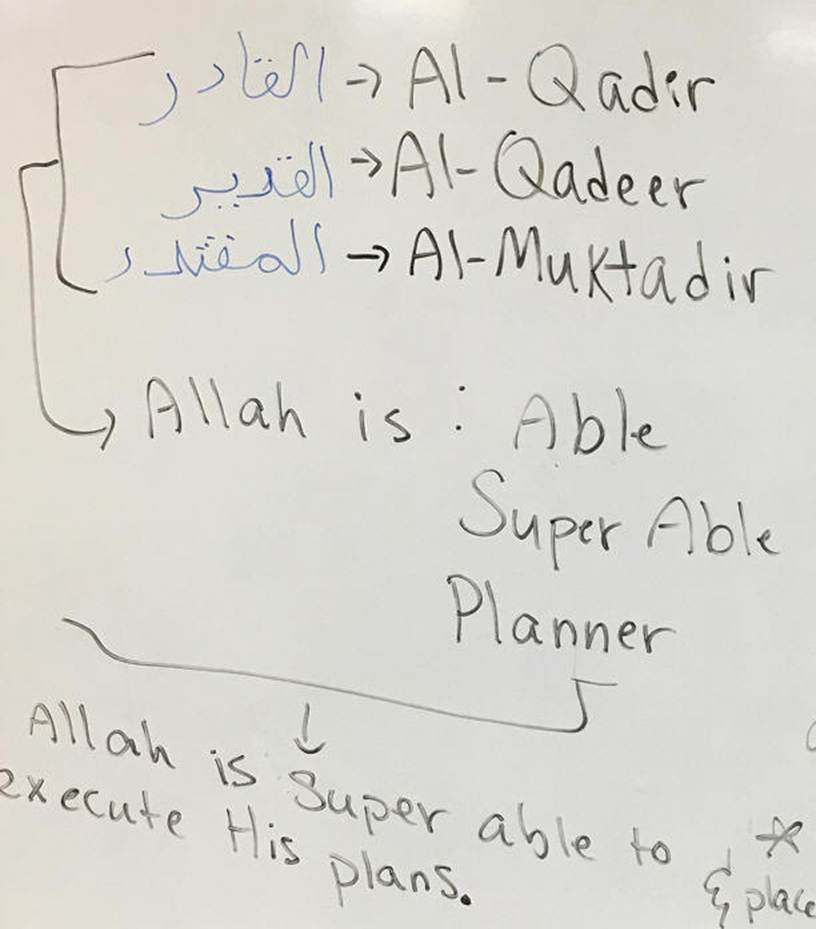 القادر → Al-Qadir
القدير → Al-Qadeer
المقتدر → Al-Muktadir
→ Allah is : Able
Super Able
Planner
↓
Allah is Super able to
execute His plans.
*
& place